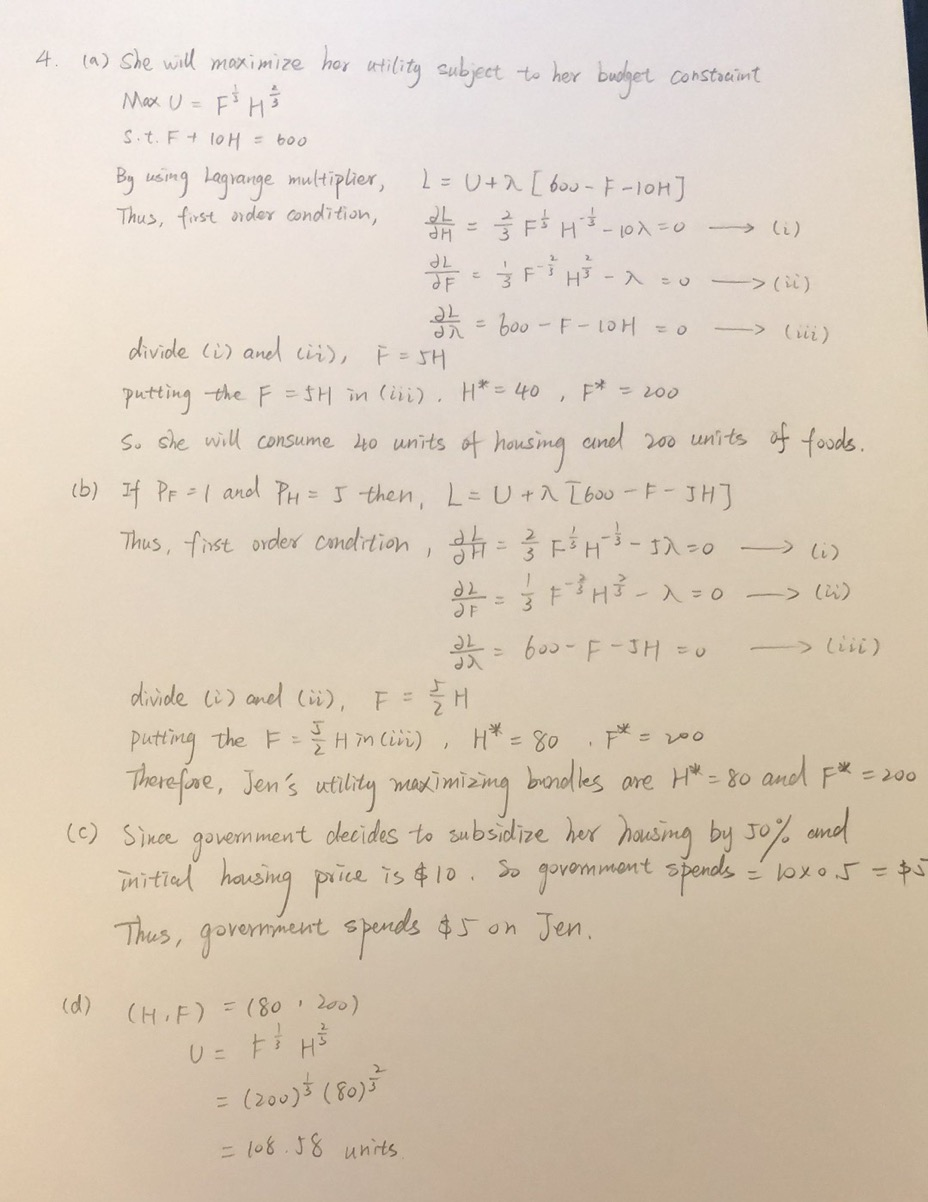 4. (a) She will maximize her utility subject to her budget constraint
Max U = F^{1/3} H^{2/3}
s.t. F + 10H = 600
By using Lagrange multiplier, L = U + λ [600 - F - 10H]
Thus, first order condition, ∂L/∂H = 2/3 F^{1/3} H^{-1/3} - 10λ = 0 → (i)
∂L/∂F = 1/3 F^{-2/3} H^{2/3} - λ = 0 → (ii)
∂L/∂λ = 600 - F - 10H = 0 → (iii)
divide (i) and (ii), F = 5H
putting the F = 5H in (iii), H* = 40, F* = 200
So she will consume 40 units of housing and 200 units of foods.
(b) If PF = 1 and PH = 5 then, L = U + λ [600 - F - 5H]
Thus, first order condition, ∂L/∂H = 2/3 F^{1/3} H^{-1/3} - 5λ = 0 → (i)
∂L/∂F = 1/3 F^{-2/3} H^{2/3} - λ = 0 → (ii)
∂L/∂λ = 600 - F - 5H = 0 → (iii)
divide (i) and (ii), F = 5/2 H
putting the F = 5/2 H in (iii), H* = 80, F* = 200
Therefore, Jen's utility maximizing bundles are H* = 80 and F* = 200
(c) Since government decides to subsidize her housing by 50% and
initial housing price is $10. So government spends = 10×0.5 = $5
Thus, government spends $5 on Jen.
(d) (H, F) = (80, 200)
U = F^{1/3} H^{2/3}
= (200)^{1/3} (80)^{2/3}
= 108.58 units